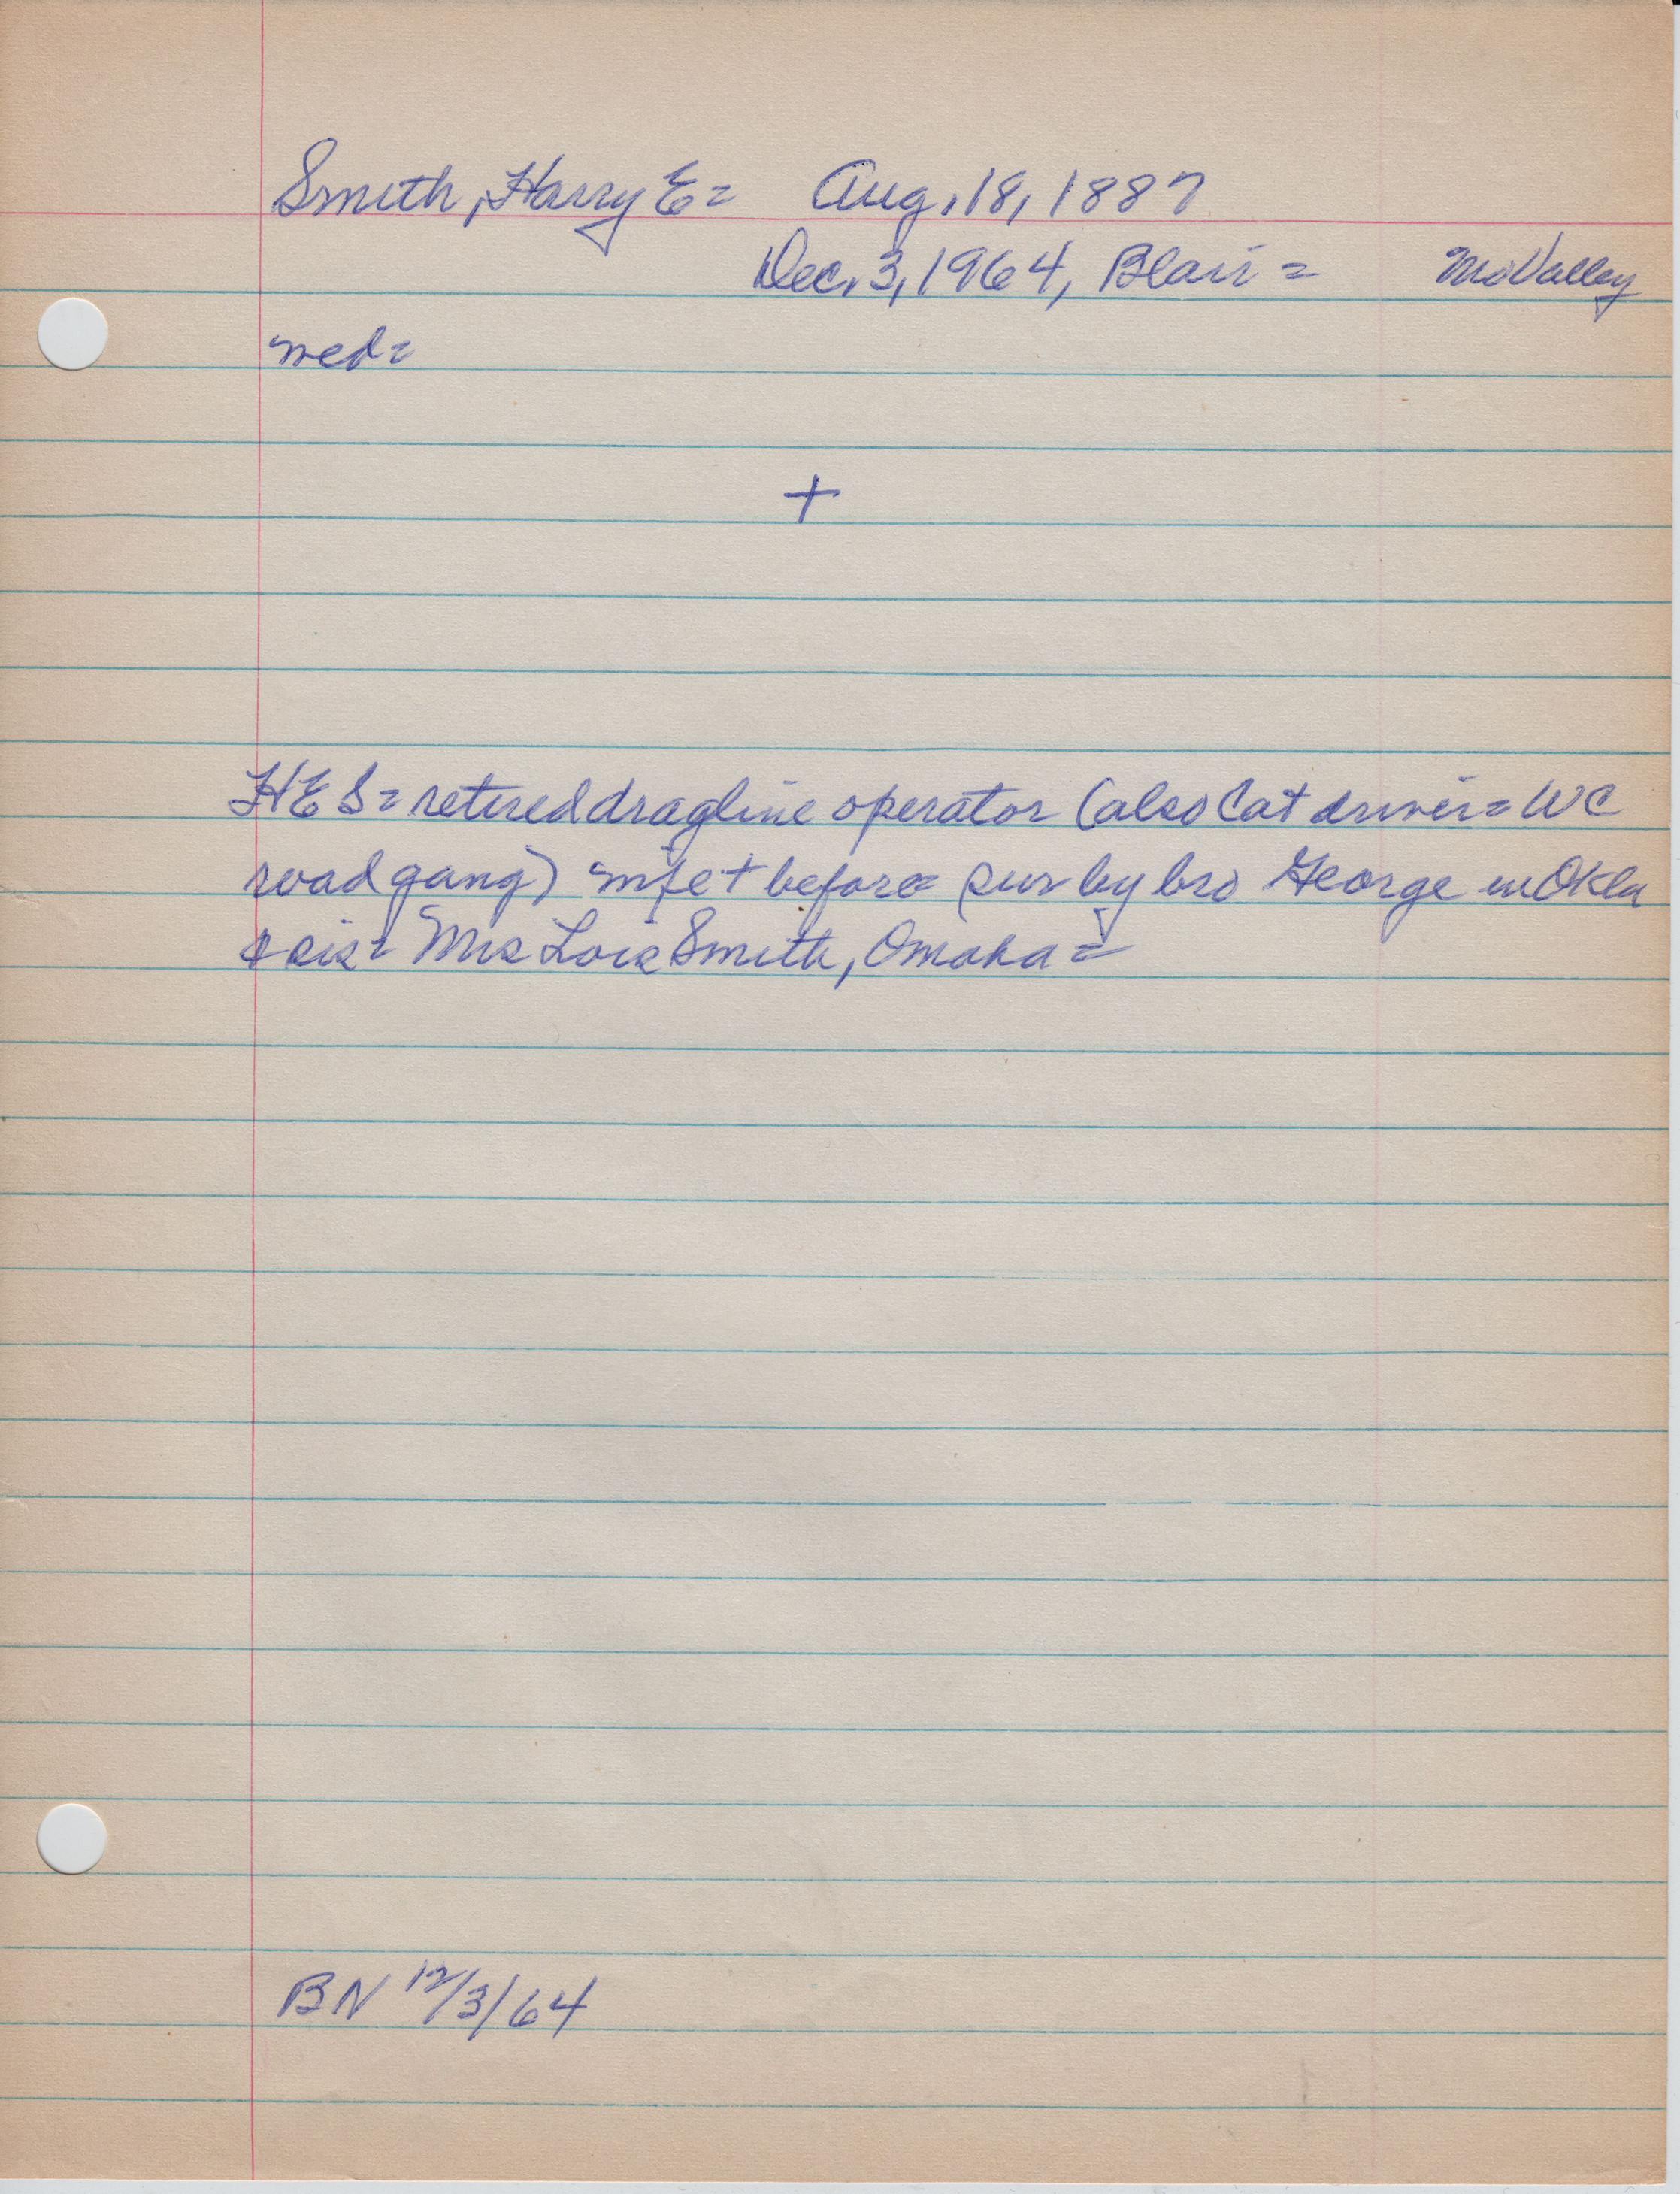 Smith, Harry E = Aug. 18, 1887
Dec. 3, 1964, Blair = MoValley
wed =
+
HES = retired dragline operator (also Cat driver = WC
road gang) wife + before = sur by bro George in Okla
& sis = Mrs Lois Smith, Omaha =
BN 12/3/64